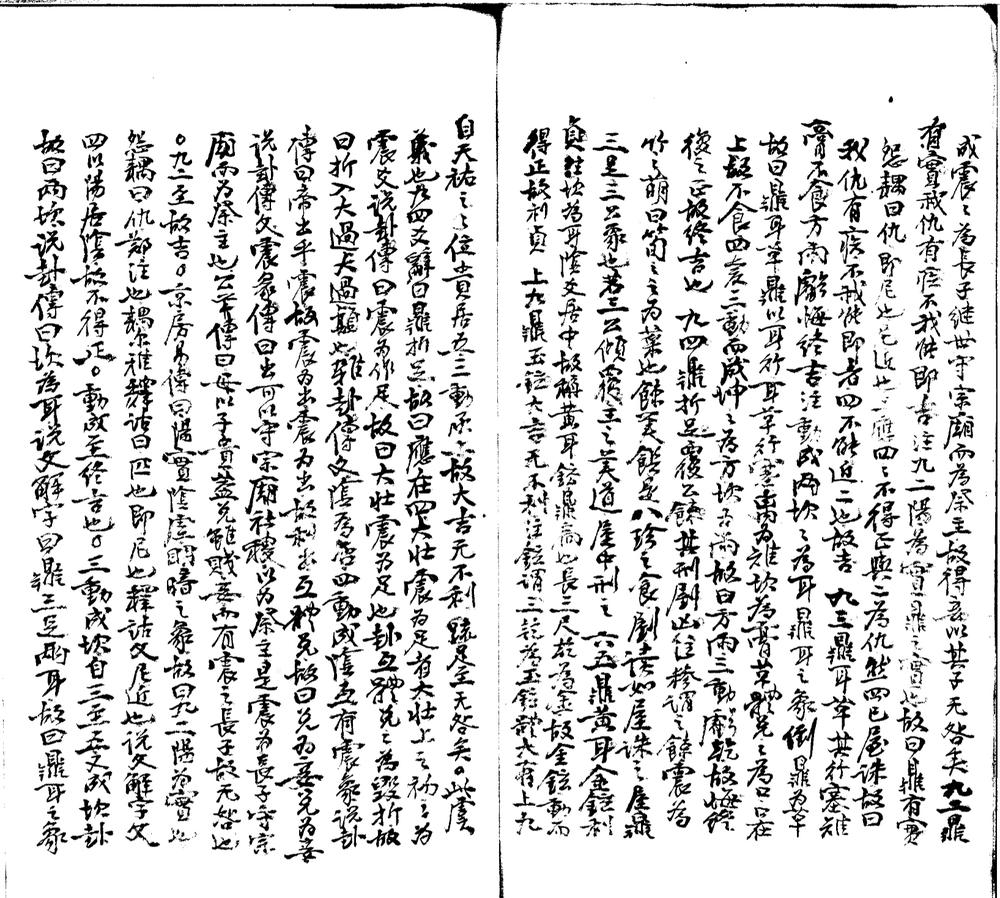 成震震為長子繼世守宗廟而為祭主故得妾以其子无咎矣九二鼎
有實我仇有疾不我能即吉注九二陽為實鼎之實也故曰鼎有實
怨耦曰仇即尼也尼近也二應四四不得正與二為仇然四已屋誅故曰
我仇有疾不我能即者四不能近二也故吉 九三鼎耳革其行塞雉
膏不食方雨虧悔終吉注動成兩坎坎為耳鼎耳之象倒鼎為革
故曰鼎耳革鼎以耳行耳革行塞離為雉坎為膏革體兌兌為口口在
上故不食四變三動而成坤坤為方坎為雨故曰方雨三動虧乾故悔終
復之正故終吉也 九四鼎折足覆公餗其刑剭凶注糝謂之餗震為
竹竹萌曰筍筍之為菜也餗美饌是八珍之食剭讀如屋誅之屋鼎
三足三公象也若三公傾覆王之美道屋中刑之 六五鼎黃耳金鉉利
貞注坎為耳陰爻居中故稱黃耳鉉鼎扃也長三尺乾為金故金鉉動而
得正故利貞 上九鼎玉鉉大吉无不利注鉉謂三乾為玉鉉體大有上九
自天祐之之位貴居五三動承上故大吉无不利疏足全无咎矣○此虞
義也九四爻辭曰鼎折足故曰應在四大壯震為足初大壯上之初之為
震爻說卦傳曰震為作足故曰大壯震為足也卦互體兌兌為毀折故
曰折入大過大過顛也雜卦傳文陰為否四動成陰互有震象說卦
傳曰帝出乎震故震為出震為出故利出互體兌故曰兌為妾兌為妾
說卦傳文震彖傳曰出可以守宗廟社稷以為祭主是震為長子守宗
廟而為祭主也公羊傳曰母以子貴蓋兌雖賤妾而有震之長子故无咎也
○九二至故吉○京房易傳曰陽實陰虛明暗之象故曰九二陽為實也
怨耦曰仇鄭注也耦爾雅釋詁曰匹也即尼也釋詁文尼近也說文解字文
四以陽居陰故不得正○動成至終吉也○三動成坎自三至五又成坎卦
故曰兩坎說卦傳曰坎為耳說文解字曰鼎三足兩耳故曰鼎耳之象